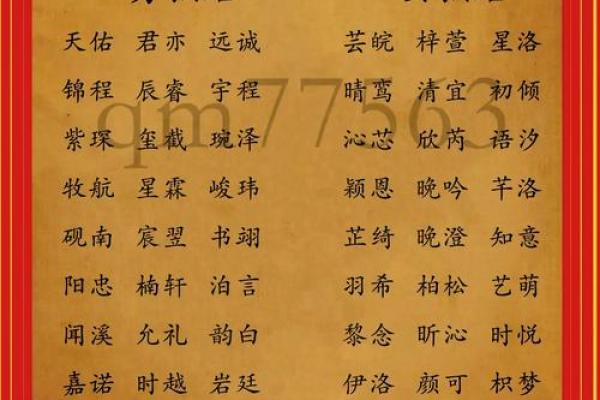 天佑 君亦 远诚 芸皖 梓萱 星洛
锦程 辰睿 宇程 晴鸾 清宜 初倾
qm77563
紫琛 玺截 琬泽 沁芯 欣芮 语汐
牧航 星霖 峻玮 颖恩 晚吟 芊洛
砚南 宸翌 书翊 芷绮 晚澄 知意
阳忠 楠轩 泊言 羽希 柏松 艺萌
闻溪 允礼 韵白 黎念 昕沁 时悦
嘉诺 时越 岩廷 伊洛 颜可 枳梦